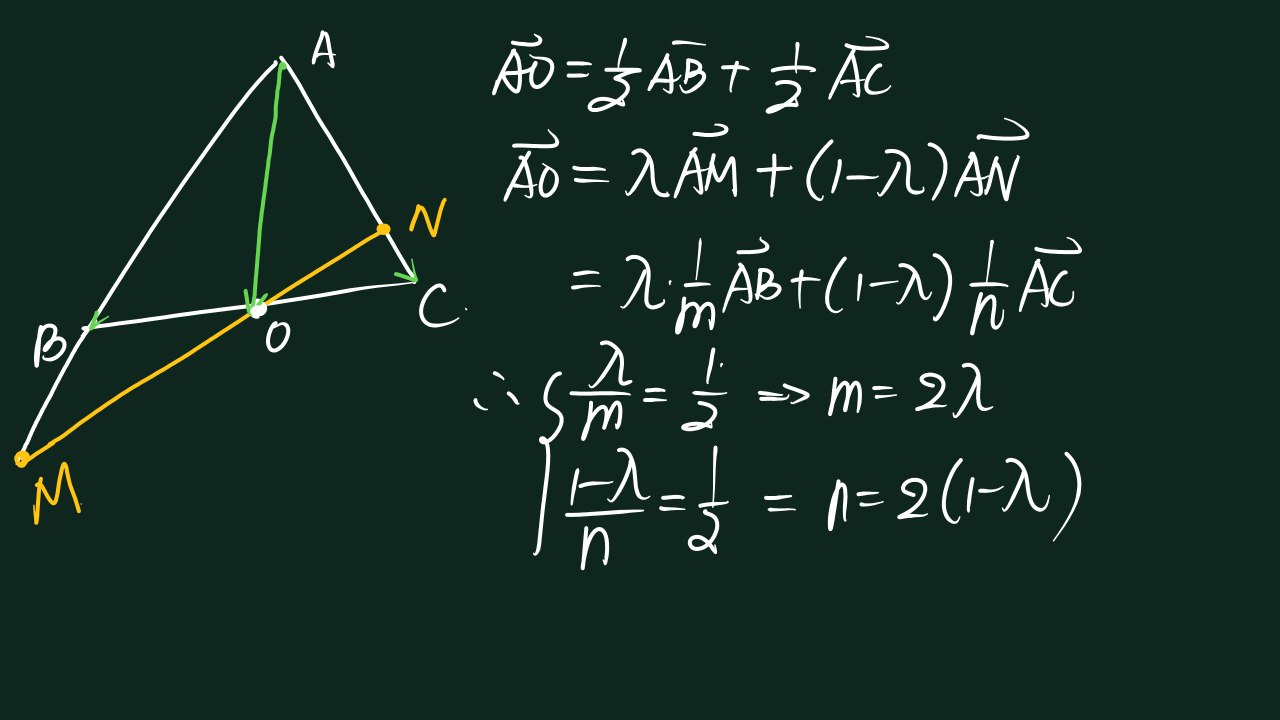 A
N
C
B
O
M
$\vec{AO} = \frac{1}{2}\vec{AB} + \frac{1}{2}\vec{AC}$
$\vec{AO} = λ\vec{AM} + (1-λ)\vec{AN}$
$= λ \cdot \frac{1}{m}\vec{AB} + (1-λ)\frac{1}{n}\vec{AC}$
$∴ \{ \frac{λ}{m} = \frac{1}{2} \Rightarrow m = 2λ$
$\frac{1-λ}{n} = \frac{1}{2} = n = 2(1-λ)$